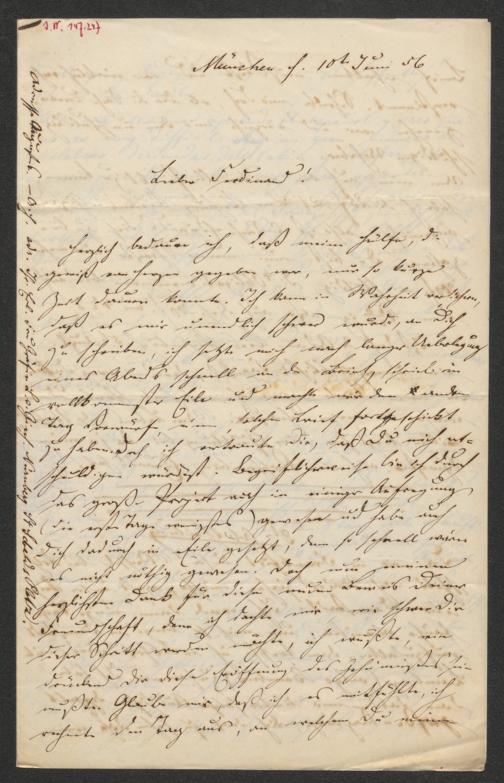 I.N. 147.247
München d. 10t Juni 56
Lieber Ferdinand!
Herzlich bedaure ich, daß meine Hülfe, die
gewiß von Herzen gegeben war, nur so kurze
Zeit dauern konnte. Ich kann in Wahrheit versichern,
daß es mir unendlich schwer wurde, an Dich
zu schreiben, ich setzte mich nach langer Ueberlegung
eines Abends schnell in den schrieb in
vollkommenster Eile und machte mir den andern
Tag Vorwürfe, einen solchen Brief fortgeschickt
zu haben. Doch ich vertraute Dir, daß Du mich ent-
schuldigen würdest. Begreiflicherweise bin ich durch
das große Projekt auch in einiger Aufregung
(die ersten Tage wenigstens) gewesen und habe auch
Dich dadurch in Eile gesetzt, denn so schnell wäre
es nicht nöthig gewesen. Doch nun meinen
herzlichsten Dank für diesen neuen Beweis Deiner
Freundschaft, denn ich dachte mir wie schwer Dir
dieser Schritt werden möchte, ich wußte, wie
drückend Dir diese Eröffnung des Geheimnißes sein
mußte. Glaube mir, daß ich es mitfühlte, ich
rechnete den Tag aus, an welchem Du meinen